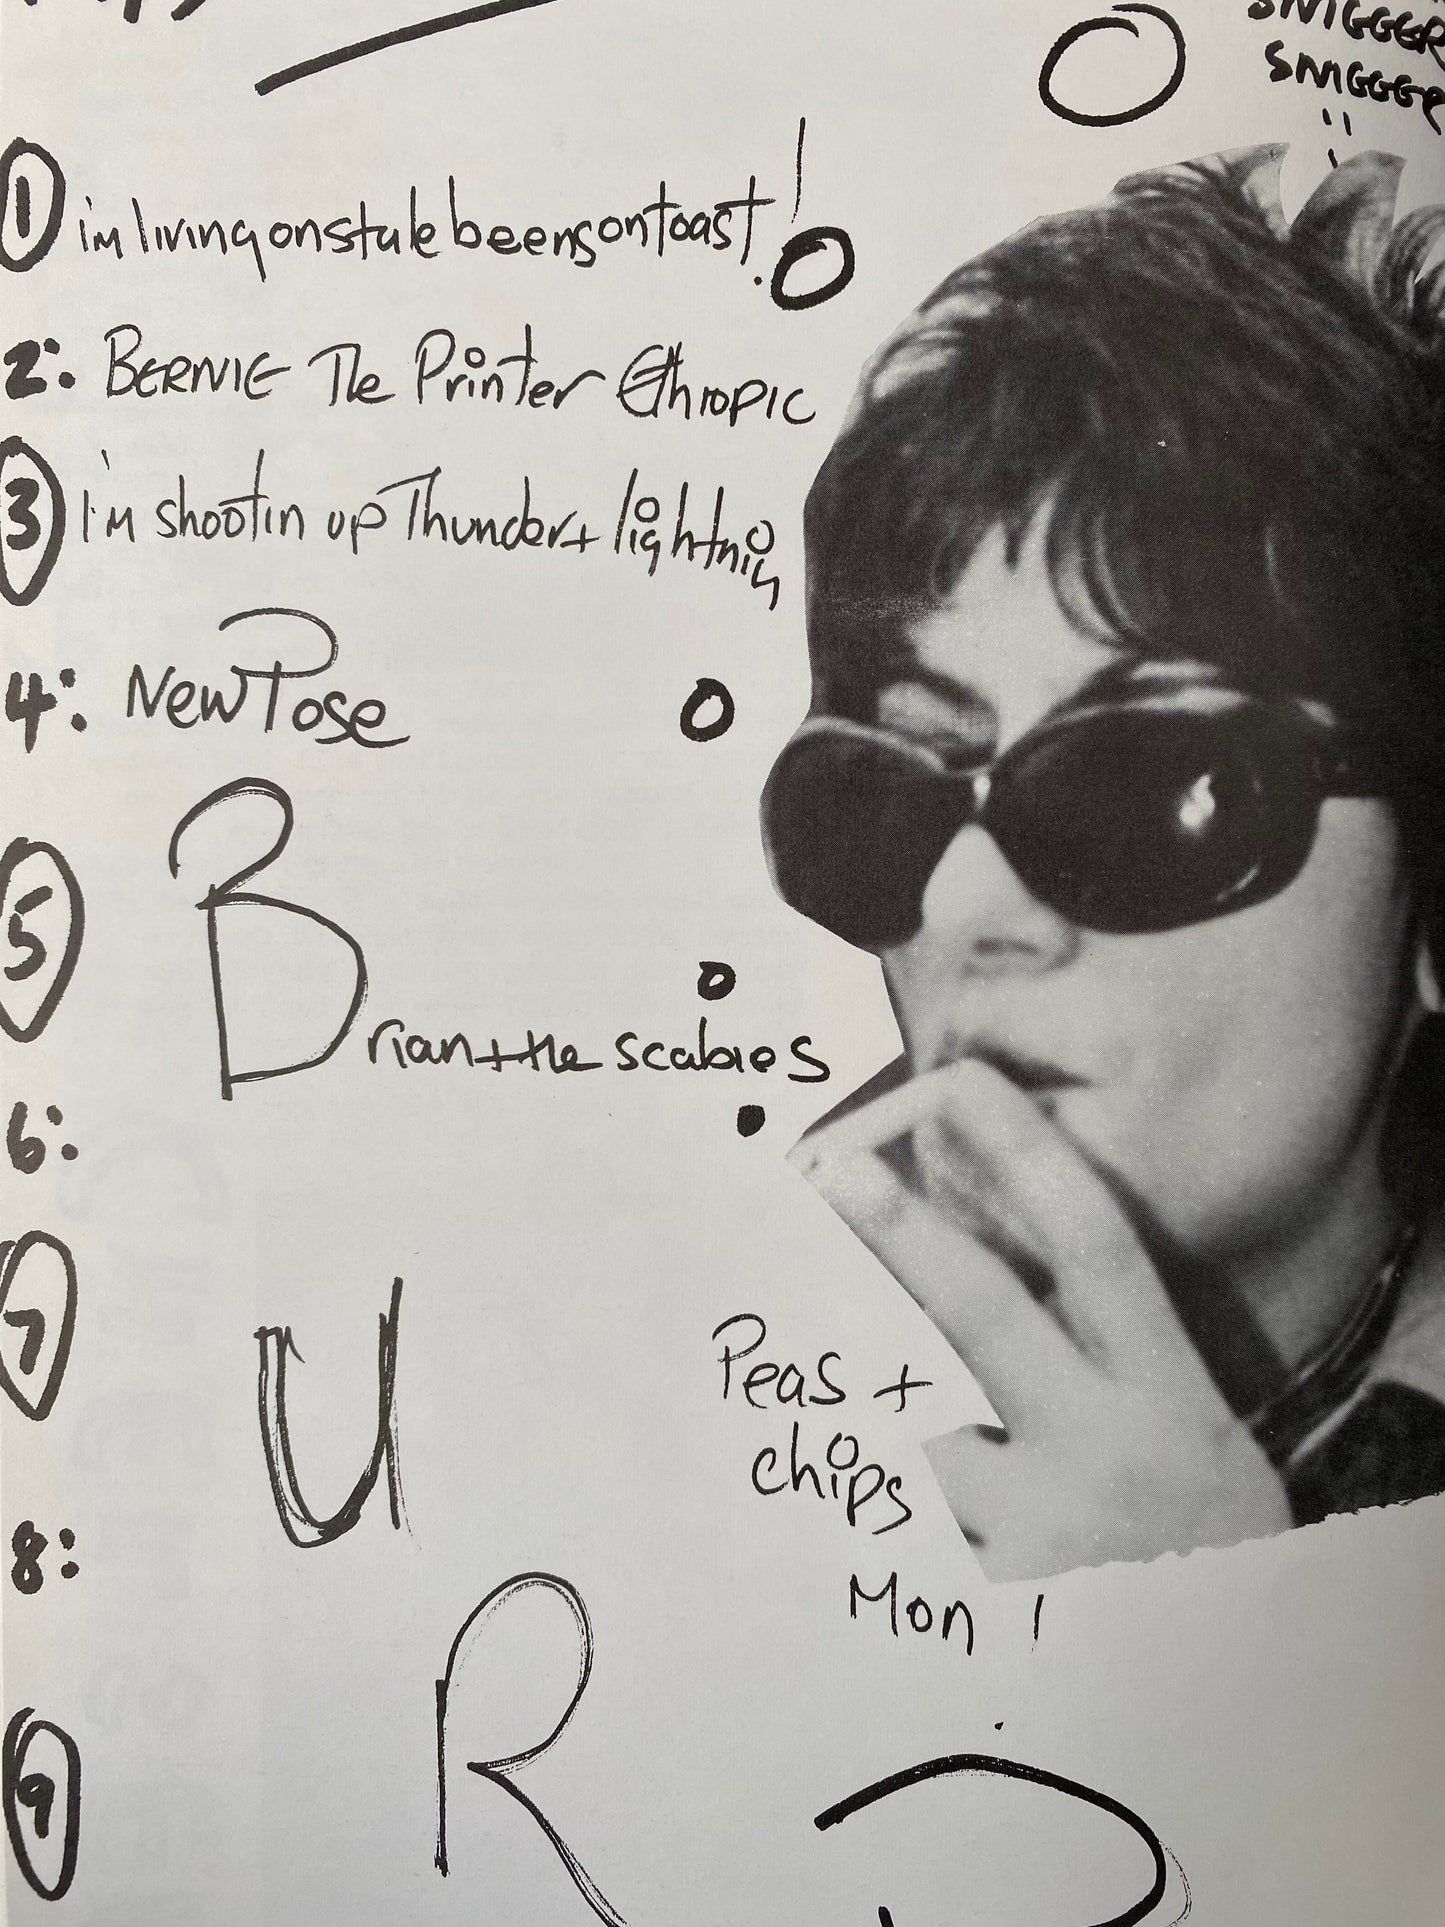 SNIGGER
SNIGGER
1 i'm livingonstale beensontoast!
2: BERNIE The Printer Ethiopic
3 I'm shootin up Thunder + lightnin
4: New Pose
5 Brian + the scabies
6:
7
U
Peas +
chips
8:
Mon !
R
9